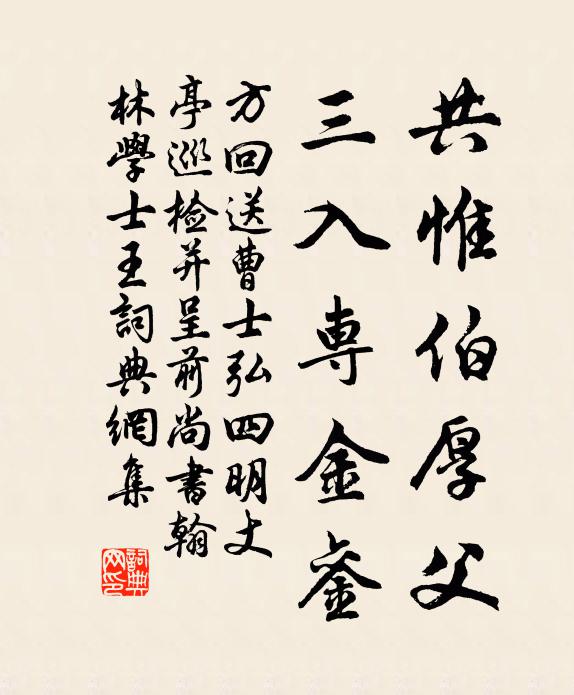 共惟伯厚父
三入専金銮
方回送曹士弘四明丈
亭巡檢并呈前尚書翰
林學士王詞典網集
詞典网印